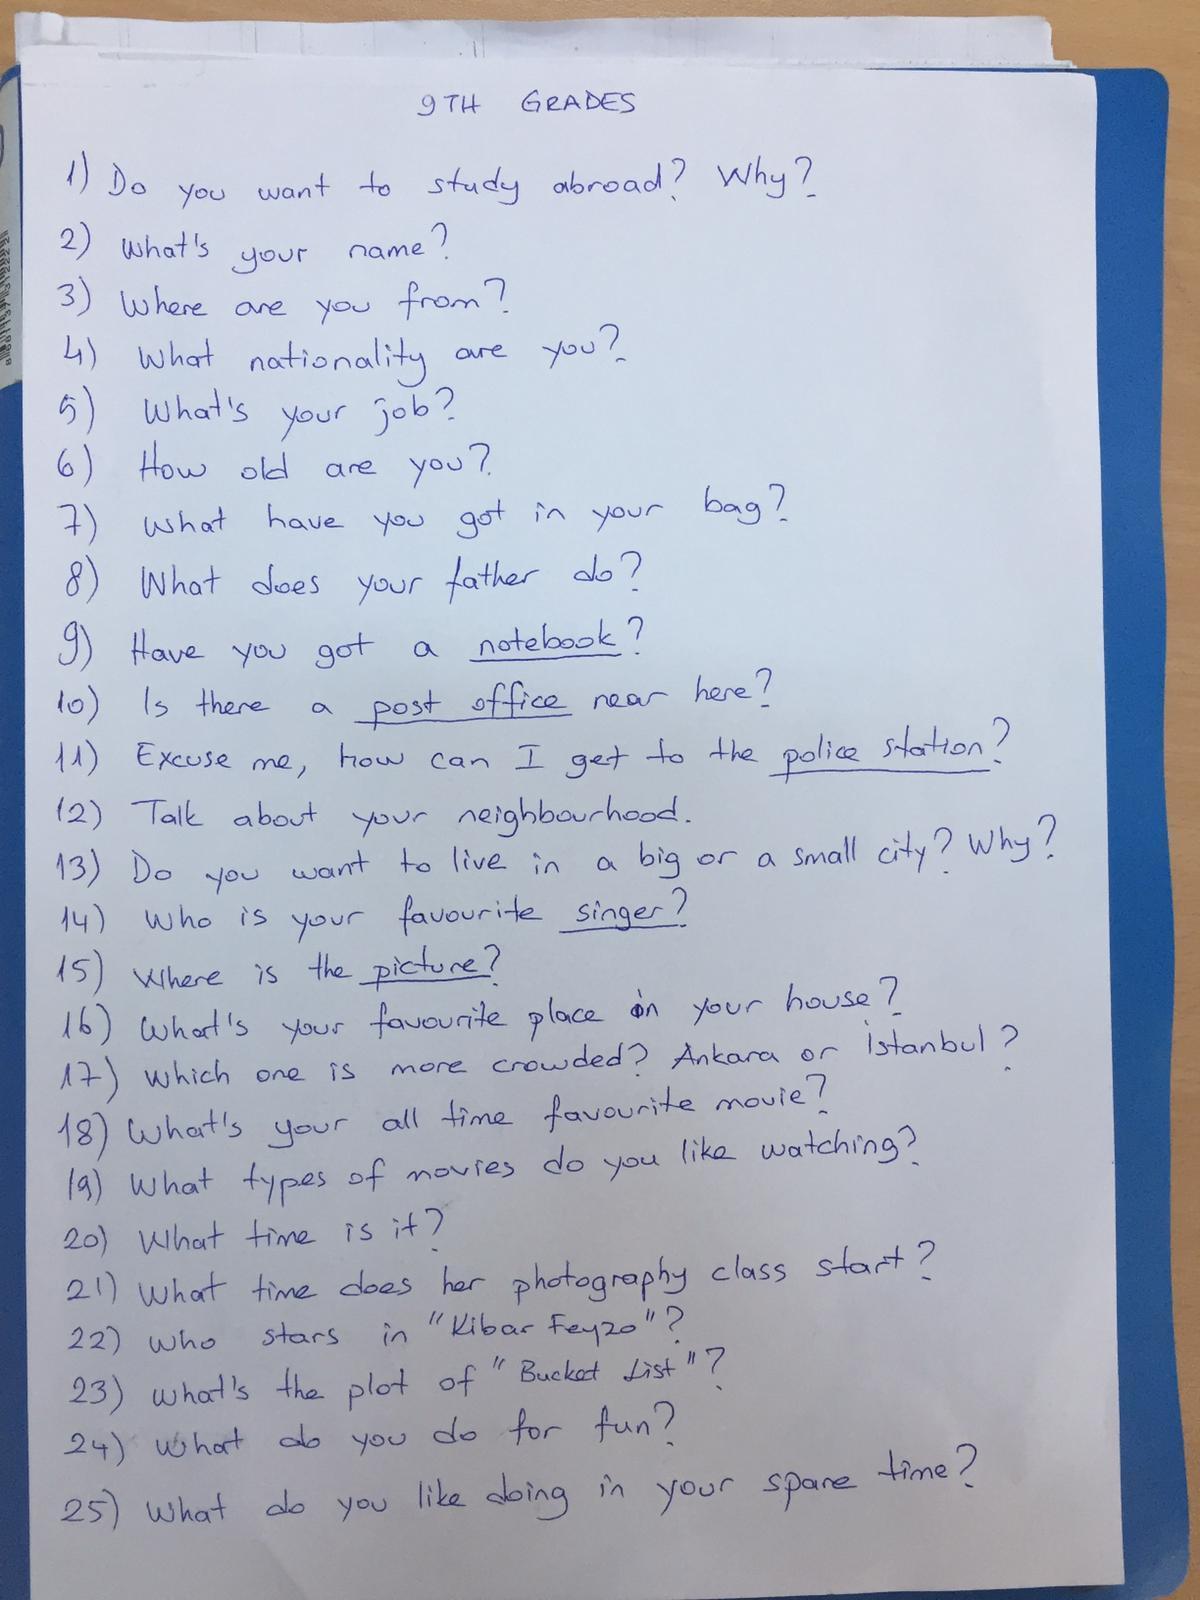 9TH GRADES
1) Do you want to study abroad? Why?
2) What's your name?
3) Where are you from?
4) What nationality are you?
5) What's your job?
6) How old are you?
7) What have you got in your bag?
8) What does your father do?
9) Have you got a notebook?
10) Is there a post office near here?
11) Excuse me, how can I get to the police station?
12) Talk about your neighbourhood.
13) Do you want to live in a big or a small city? Why?
14) Who is your favourite singer?
15) Where is the picture?
16) What's your favourite place in your house?
17) Which one is more crowded? Ankara or İstanbul?
18) What's your all time favourite movie?
19) What types of movies do you like watching?
20) What time is it?
21) What time does her photography class start?
22) Who stars in "Kibar Feyzo"?
23) What's the plot of "Bucket List"?
24) What do you do for fun?
25) What do you like doing in your spare time?